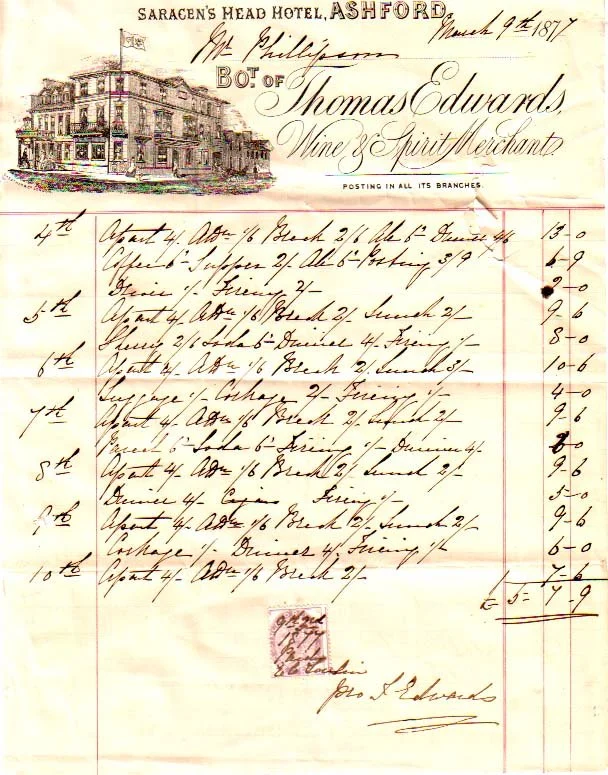 SARACEN'S HEAD HOTEL, ASHFORD,
March 9th 1877
Mr Phillipson
BOT. OF Thomas Edwards,
Wine & Spirit Merchant.
POSTING IN ALL ITS BRANCHES.
4th Apart 4/- Attn 1/6 Breek 2/6 Ale 6d Dinner 4/6 13-0
Coffee 6d Supper 2/- Ale 6d Posting 3/9 6-9
Firing 2/- 2-0
5th Apart 4/- Attn 1/6 Break 2/- Lunch 2/- 9-6
Sherry 2/6 Soda 6d Dinner 4/- Firing 1/- 8-0
6th Apart 4/- Attn 1/6 Break 2/- Lunch 3/- 10-6
Luggage 1/- Corkage 2/- Firing 1/- 4-0
7th Apart 4/- Attn 1/6 Break 2/- Lunch 2/- 9-6
Parcel 6d Soda 6d Firing 1/- Dinner 4/- 6-0
8th Apart 4/- Attn 1/6 Break 2/- Lunch 2/- 9-6
Dinner 4/- Firing 1/- 5-0
9th Apart 4/- Attn 1/6 Break 2/- Lunch 2/- 9-6
Corkage 1/- Dinner 4/- Firing 1/- 6-0
10th Apart 4/- Attn 1/6 Break 2/- 7-6
£ 5-7-9
1877
Edwards